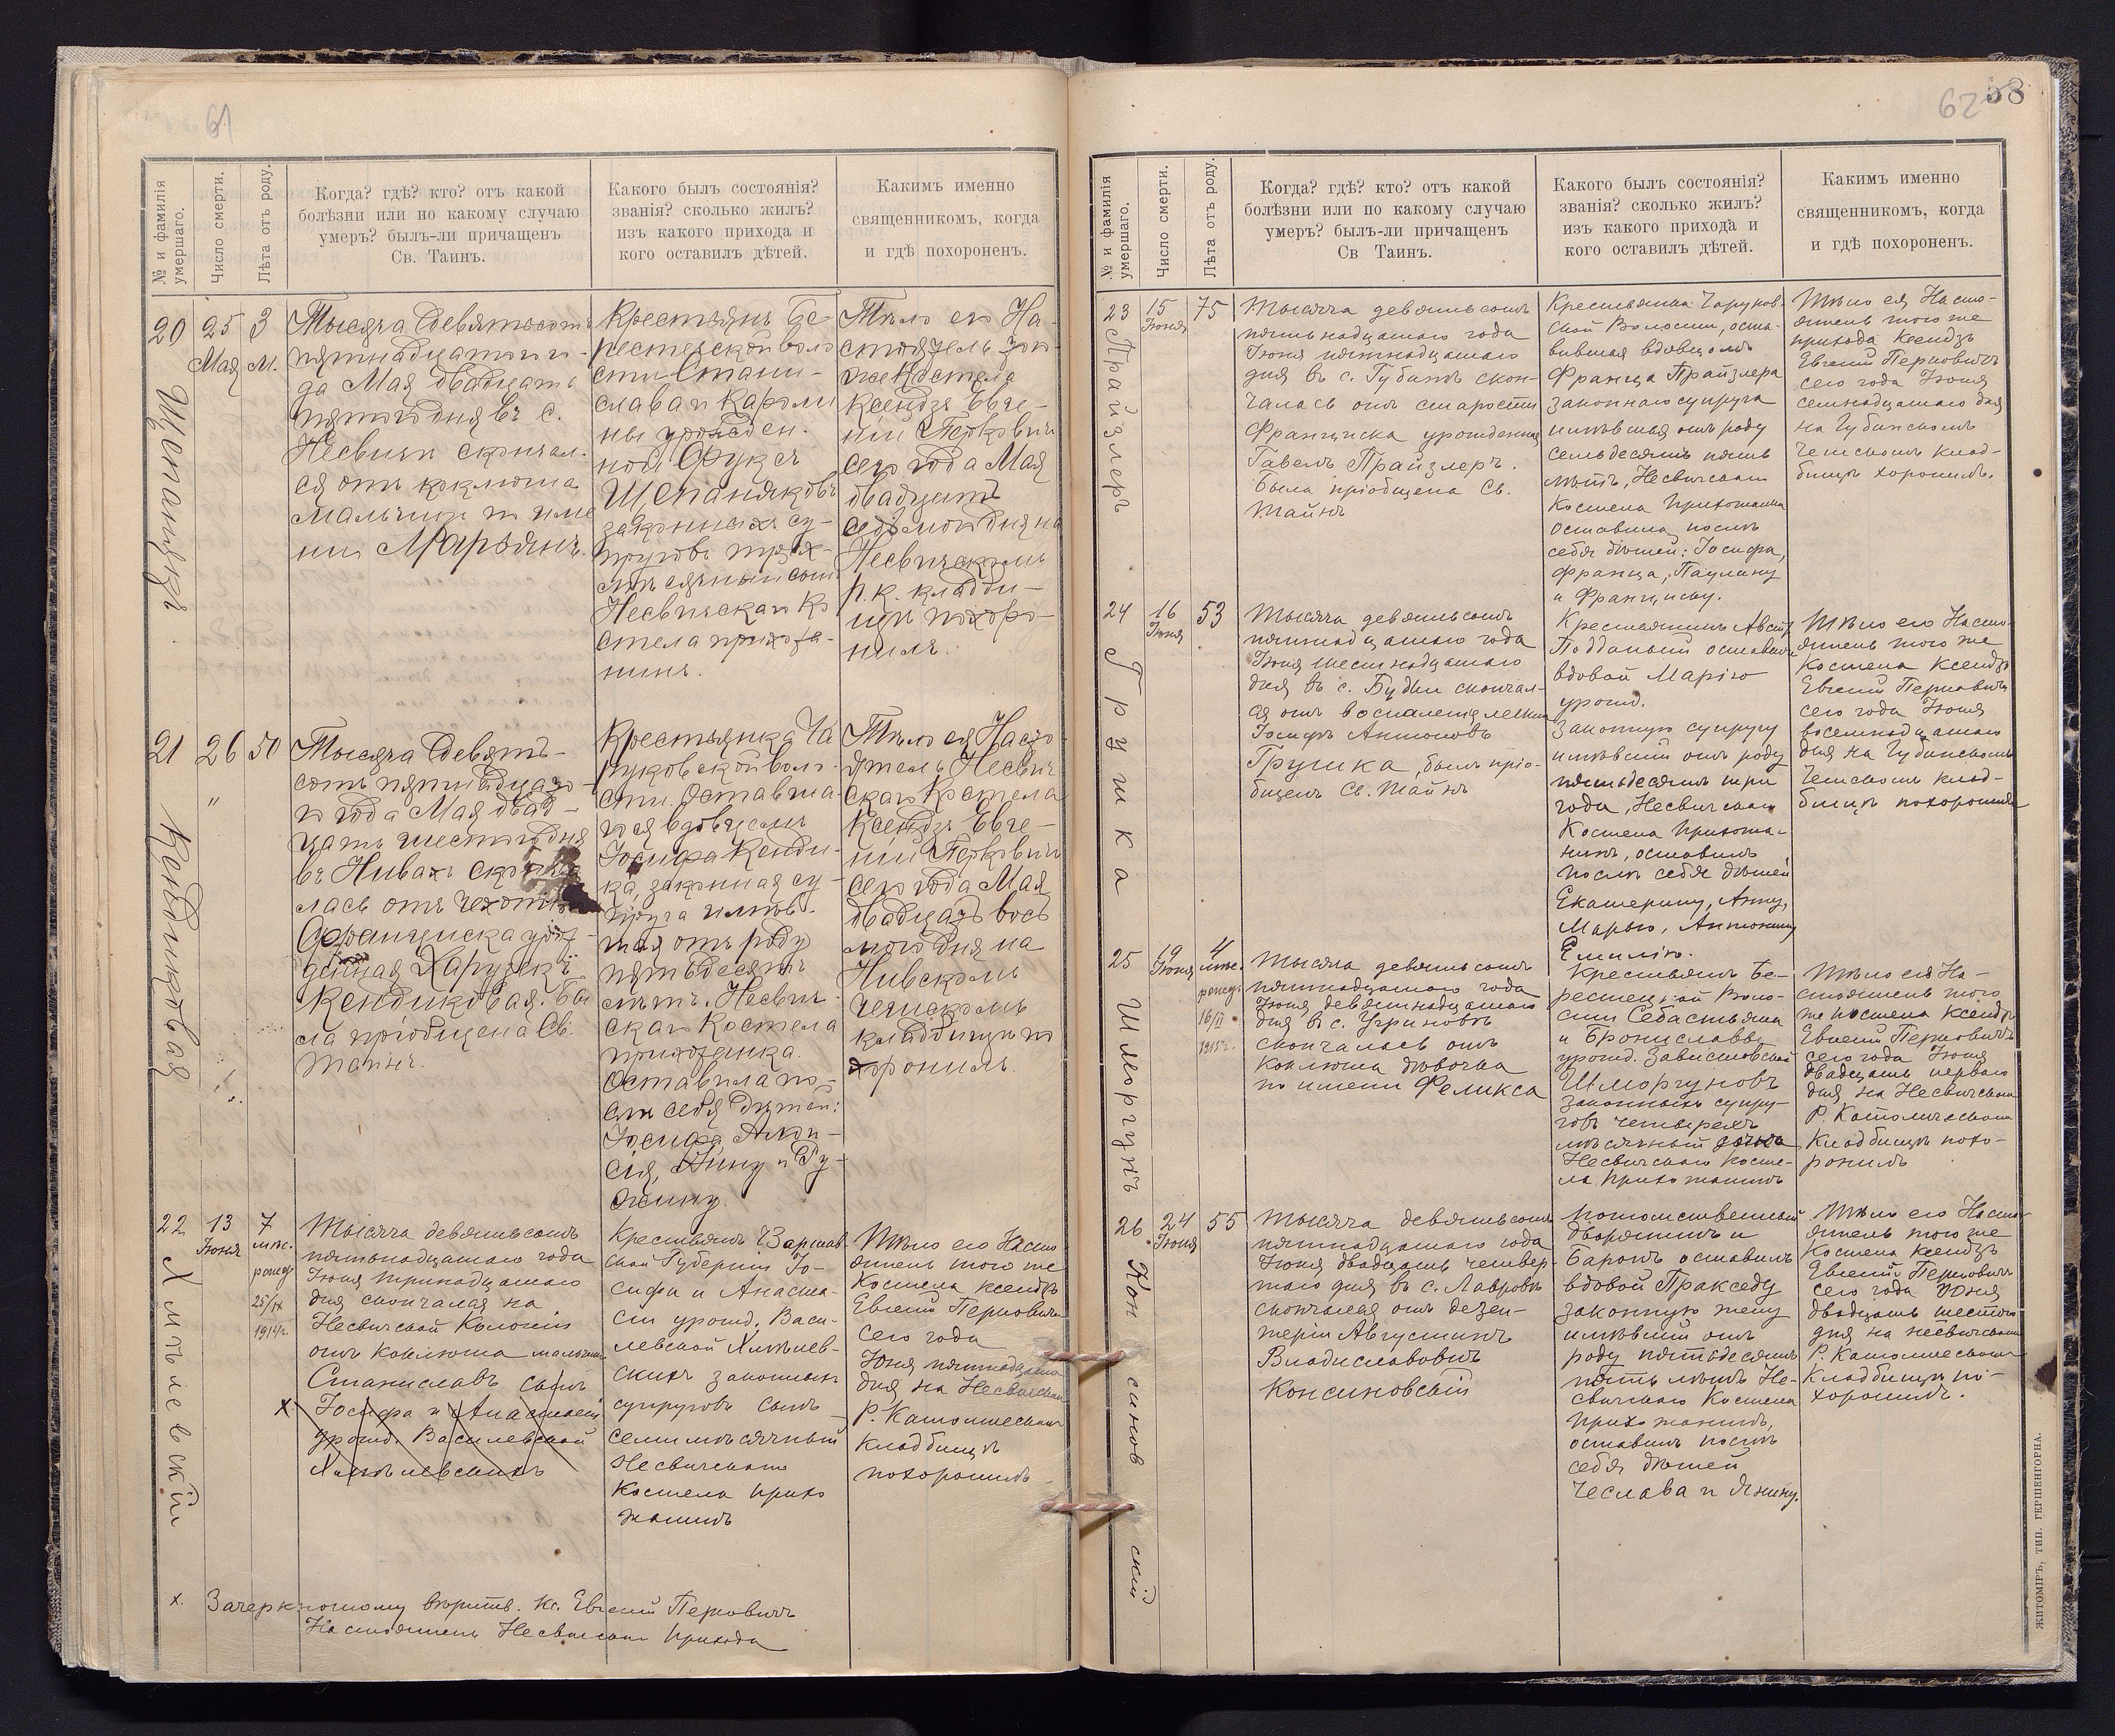 61
№ и фамилія умершаго.
Число смерти.
Лѣта отъ роду.
Когда? гдѣ? кто? отъ какой
болѣзни или по какому случаю
умеръ? былъ-ли причащенъ
Св. Таинъ.
Какого былъ состоянія?
званія? сколько жилъ?
изъ какого прихода и
кого оставилъ дѣтей.
Какимъ именно
священникомъ, когда
и гдѣ похороненъ.
20
25
Мая
3
м.
Тысяча девятьсотъ
пятнадцатаго го-
да Мая двадцать
пятого дня въ с.
Несвичи скончал-
ся отъ коклюша
мальчикъ по име
ни Марьянъ.
Крестьянъ Бе-
рестечской воло
сти Стани-
слава и Кароли
ны урожден-
ной Фуксъ
Щепаняковъ
законныхъ су-
пруговъ трех-
мѣсячный сынъ
Несвичскаго Ко
стела прихожа-
нинъ.
Тѣло его На-
стоятель того
же Костела
Ксендзъ Евге-
ній Перковичъ
сего года Мая
двадцать
седьмого дня на
Несвическомъ
р. к. кладби-
щѣ похоро-
нилъ.
21
26
"
50
Кендиковая
Тысяча девять-
сотъ пятнадцато-
го года Мая двад-
цать шестого дня
въ Нивахъ сконча
лась отъ чахотки
Франциска урож-
денная Харузекъ
Кендиковая. Бы
ла пріобщена Св.
Таинъ.
Крестьянка Ча
руковской воло-
сти. Оставша-
яся вдовцемъ
Іосифа Кенди-
ка, законная су-
пруга имѣв-
шая отъ роду
пятьдесятъ
лѣтъ. Несвич-
скаго Костела
прихожанка.
Оставила по-
слѣ себя дѣтей:
Іосифа, Алои-
сія, Анну и Ру-
жину.
Тѣло ея Насто
ятель Несвич
скаго Костела
Ксендзъ Евге-
ній Перковичъ
сего года Мая
двадцать вось
мого дня на
Нивскомъ
чешскомъ
кладбищѣ по
хоронилъ.
22
Хмѣлевскій
13
Іюня
7
мѣс.
рожд.
25/IX
1914г.
Тысяча девятьсотъ
пятьнадцатаго года
Іюня тринадцатаго
дня скончался на
Несвичской Колоніи
отъ коклюша мальчикъ
Станиславъ сынъ
х Іосифа и Анастасіи
урожд. Василевской
Хмѣлевскихъ
Крестьянъ Варшав-
ской Губерніи Іо-
сифа и Анаста-
сіи урожд. Васи-
левской Хмѣлев-
скихъ законныхъ
супруговъ сынъ
семимѣсячный
Несвичскаго
Костела прихо
жанинъ
Тѣло его Насто-
ятель того же
Костела ксендзъ
Евгеній Перковичъ
сего года
Іюня пятнадцатаго
дня на Несвичскомъ
Р. Католическомъ
кладбищѣ
похоронилъ.
х. Зачеркнутому вѣрить. Кс. Евгеній Перковичъ
Настоятель Несвичскаго прихода
62
58
№ и фамилія умершаго.
Число смерти.
Лѣта отъ роду.
Когда? гдѣ? кто? отъ какой
болѣзни или по какому случаю
умеръ? былъ-ли причащенъ
Св Таинъ.
Какого былъ состоянія?
званія? сколько жилъ?
изъ какого прихода и
кого оставилъ дѣтей.
Какимъ именно
священникомъ, когда
и гдѣ похороненъ.
23
Прайзлеръ
15
Іюня
75
Тысяча девятьсотъ
пятьнадцатаго года
Іюня пятнадцатаго
дня въ с. Губинъ скон-
чалась отъ старости
Франциска урожденная
Гавелъ Прайзлеръ.
Была пріобщена Св.
Тайнъ
Крестьянка Чаруков-
ской Волости, оста-
вившая вдовцомъ
Франца Прайзлера
законнаго супруга
имѣвшая отъ роду
семьдесятъ пять
лѣтъ, Несвичскаго
Костела прихожанка
оставила послѣ
себя дѣтей: Іосифа,
Франца, Паулину
и Франциску.
Тѣло ея Насто-
ятель того же
прихода Ксендзъ
Евгеній Перковичъ
сего года Іюня
семнадцатаго дня
на Губинскомъ
Чешскомъ клад-
бищѣ хоронилъ.
24
Грушка
16
Іюня
53
Тысяча девятьсотъ
пятнадцатаго года
Іюня шестнадцатаго
дня въ с. Будки скончал-
ся отъ воспаленія легкихъ
Іосифъ Антоновъ
Грушка, былъ пріо-
бщенъ Св. Тайнъ
Крестьянинъ Австр
Подданый оставилъ
вдовой Марію
урожд.
законную супругу
имѣвшій отъ роду
пятьдесятъ три
года, Несвичскаго
Костела Прихожа-
нинъ, оставилъ
послѣ себя дѣтей
Екатерину, Анну,
Марью, Антонину
Емилію.
Тѣло его Насто-
ятель того же
Костела Ксендзъ
Евгеній Перковичъ
сего года Іюня
восемнадцатаго
дня на Губинскомъ
Чешскомъ клад-
бищѣ похоронилъ
25
Шморгунъ
19
Іюня
4
мѣс.
рожд.
16/II
1915г.
Тысяча девятьсотъ
пятнадцатаго года
Іюня девятнадцатаго
дня въ с. Угриновъ
скончалась отъ
коклюша дѣвочка
по имени Феликса
Крестьянъ Бе-
рестецкой Воло-
сти Себастьяна
и Брониславы
урожд. Завистовской
Шморгуновъ
законныхъ супру-
говъ четырехъ
мѣсячный дочка
Несвичскаго Косте-
ла прихожанинъ
Тѣло ея На-
стоятель того
же Костела Ксендзъ
Евгеній Перковичъ
сего года Іюня
двадцать перваго
дня на Несвичскомъ
Р. Католическомъ
Кладбищѣ похо-
ронилъ
26
Консиновскій
24
Іюня
55
Тысяча девятьсотъ
пятнадцатаго года
Іюня двадцать четвер-
таго дня въ с. Лавровъ
скончался отъ дезен-
теріи Августинъ
Владиславовичъ
Консиновскій
Потомственный
дворянинъ и
Баронъ оставилъ
вдовой Пракседу
законную жену
имѣвшій отъ
роду пятьдесятъ
пять лѣтъ Не-
свичскаго Костела
прихожанинъ,
оставилъ послѣ
себя дѣтей
Чеслава и Янину.
Тѣло его Насто-
ятель того же
Костела Ксендзъ
Евгеній Перковичъ
сего года Іюня
двадцать шестого
дня на несвичскомъ
Р. Католическомъ
Кладбищѣ по-
хоронилъ.
ЖИТОМІРЪ, ТИП. ГЕРШЕНГОРНА.